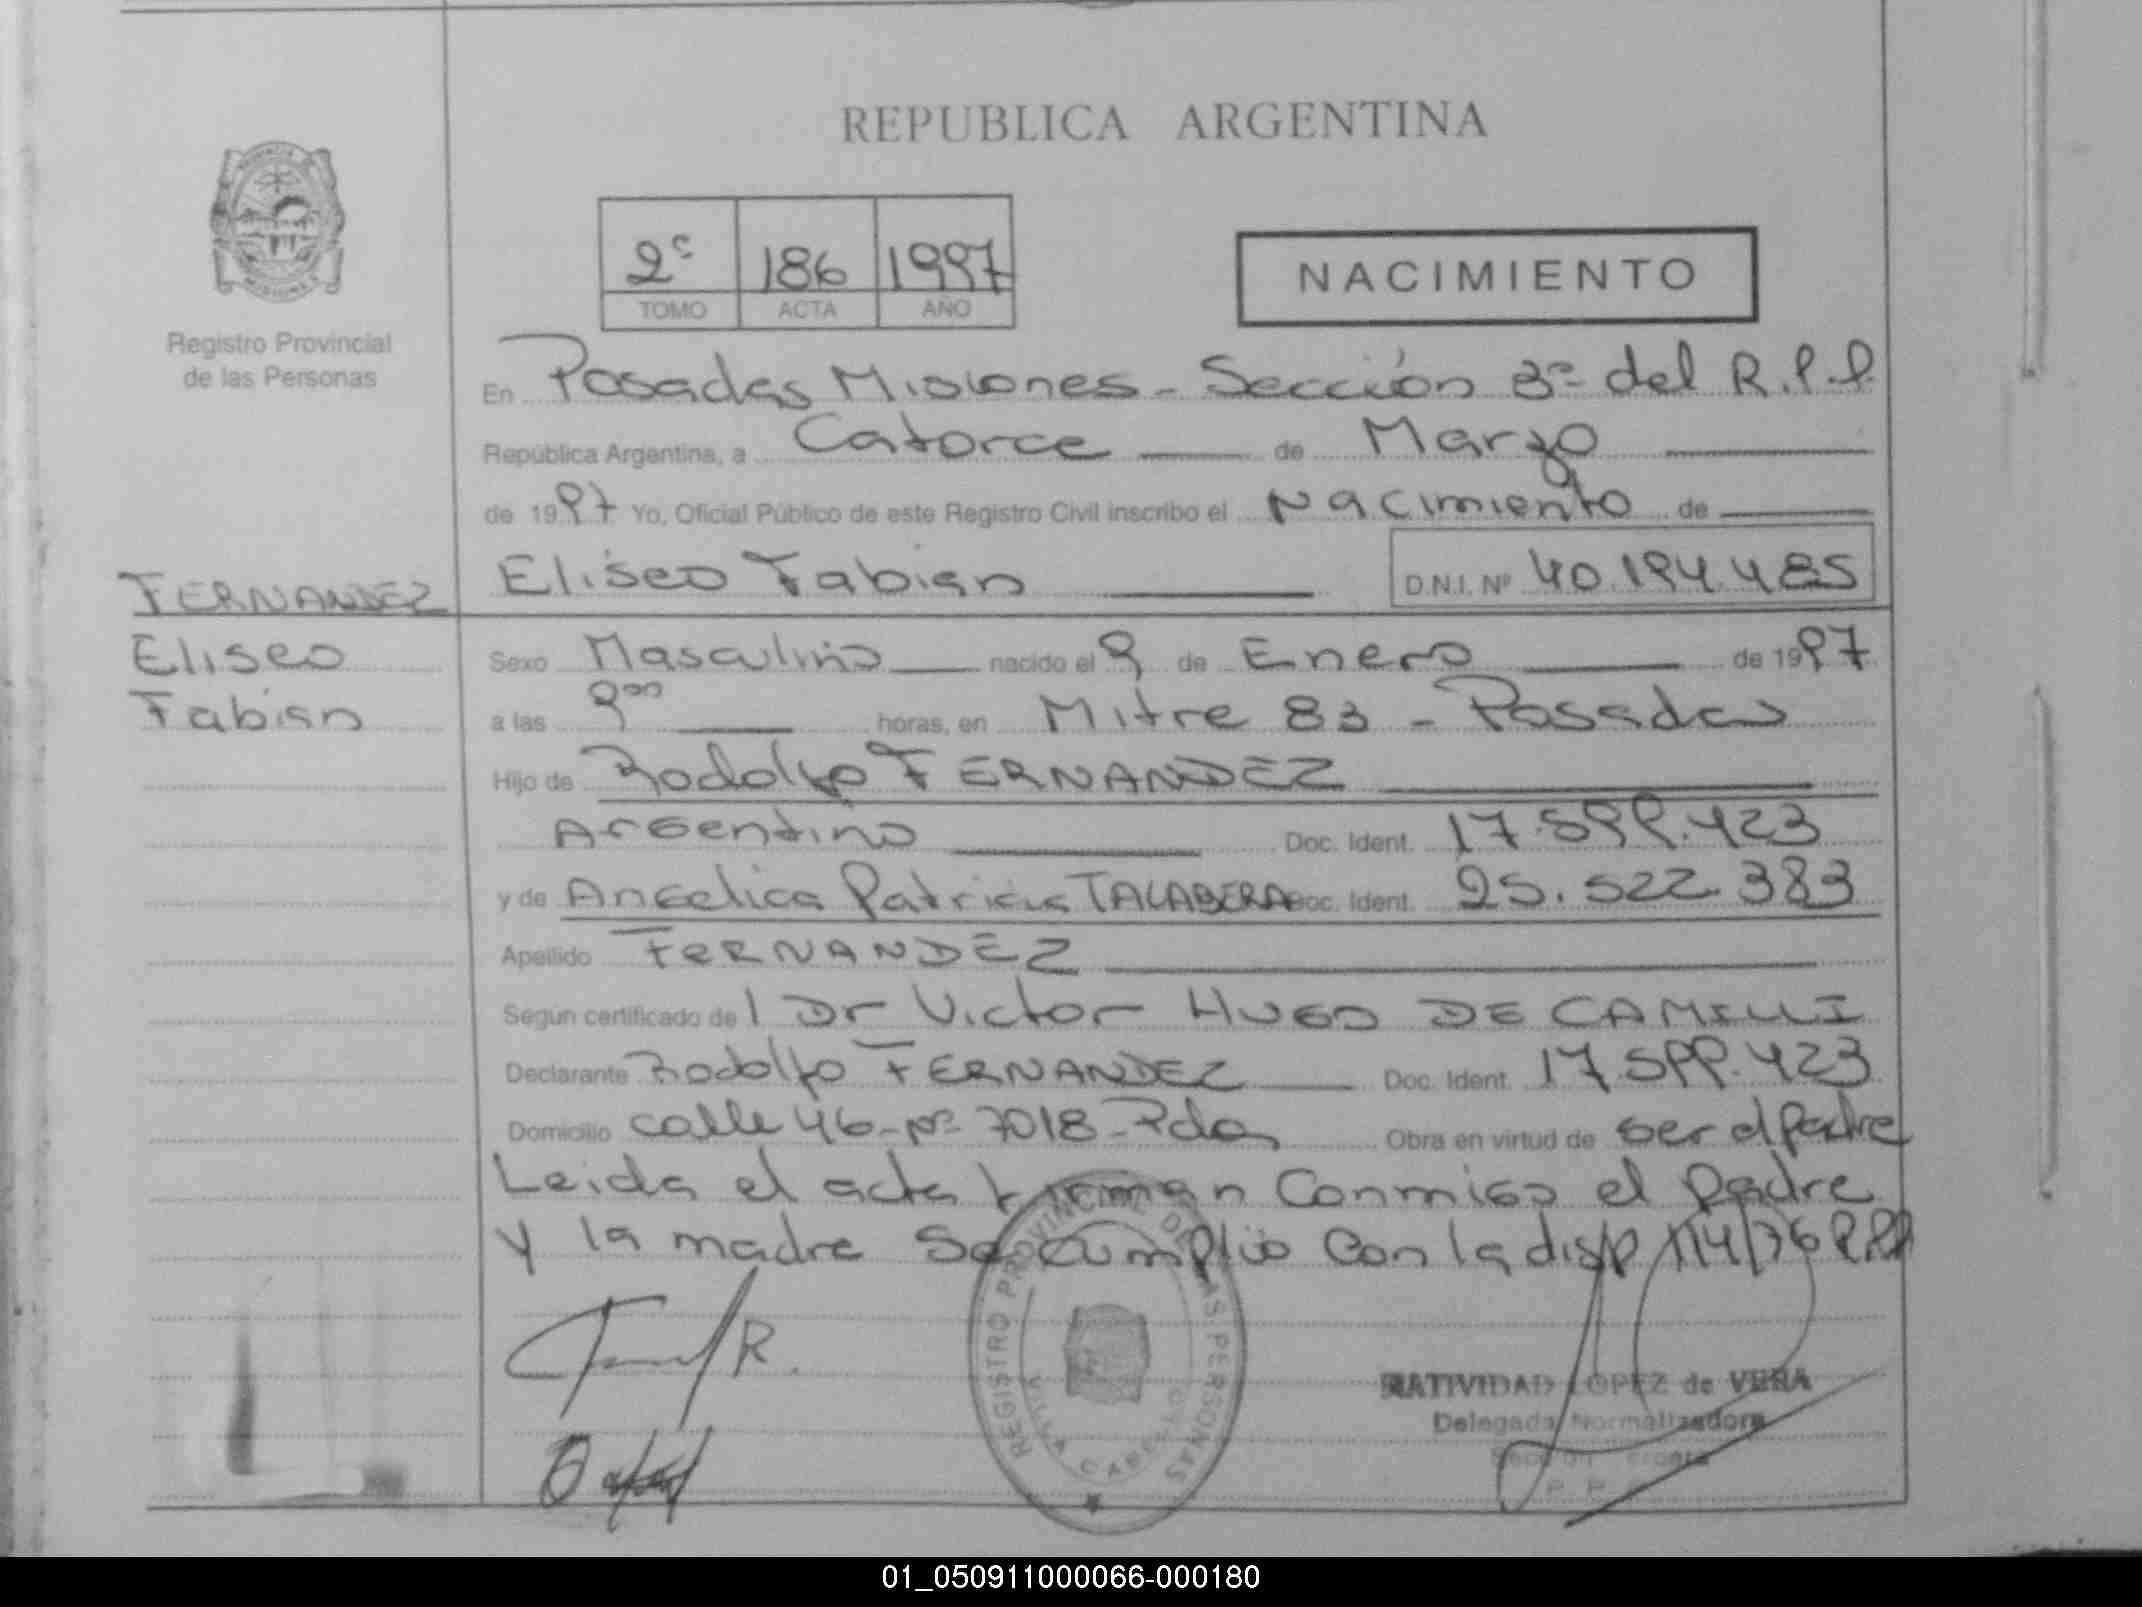 REPUBLICA ARGENTINA
2º 186 1997
TOMO ACTA AÑO
NACIMIENTO
Registro Provincial
de las Personas
En Posadas Misiones - Sección 3º del R.P.P
República Argentina, a Catorce de Marzo
de 1997 Yo, Oficial Público de este Registro Civil inscribo el Nacimiento de
Eliseo Fabian D.N.I. Nº 40.194.485
FERNANDEZ
Eliseo
Fabian
Sexo Masculino nacido el 9 de Enero de 1997
a las 9°° horas, en Mitre 83 - Posadas
Hijo de Rodolfo FERNANDEZ
Argentino Doc. Ident. 17.599.423
y de Angelica Patricia TALABERA Doc. Ident. 25.522.383
Apellido FERNANDEZ
Segun certificado de l Dr Victor HUGO DE CAMILLI
Declarante Rodolfo FERNANDEZ Doc. Ident. 17.599.423
Domicilio calle 46 - nº 7018 - Pdas Obra en virtud de ser el padre
Leida el acta firman conmigo el padre
y la madre Se cumplio con la disp 114/76 R.P.P
REGISTRO PROVINCIAL DE LAS PERSONAS
VILLA CABELLO
NATIVIDAD LOPEZ de VERA
Delegada Normalizadora
01_050911000066-000180